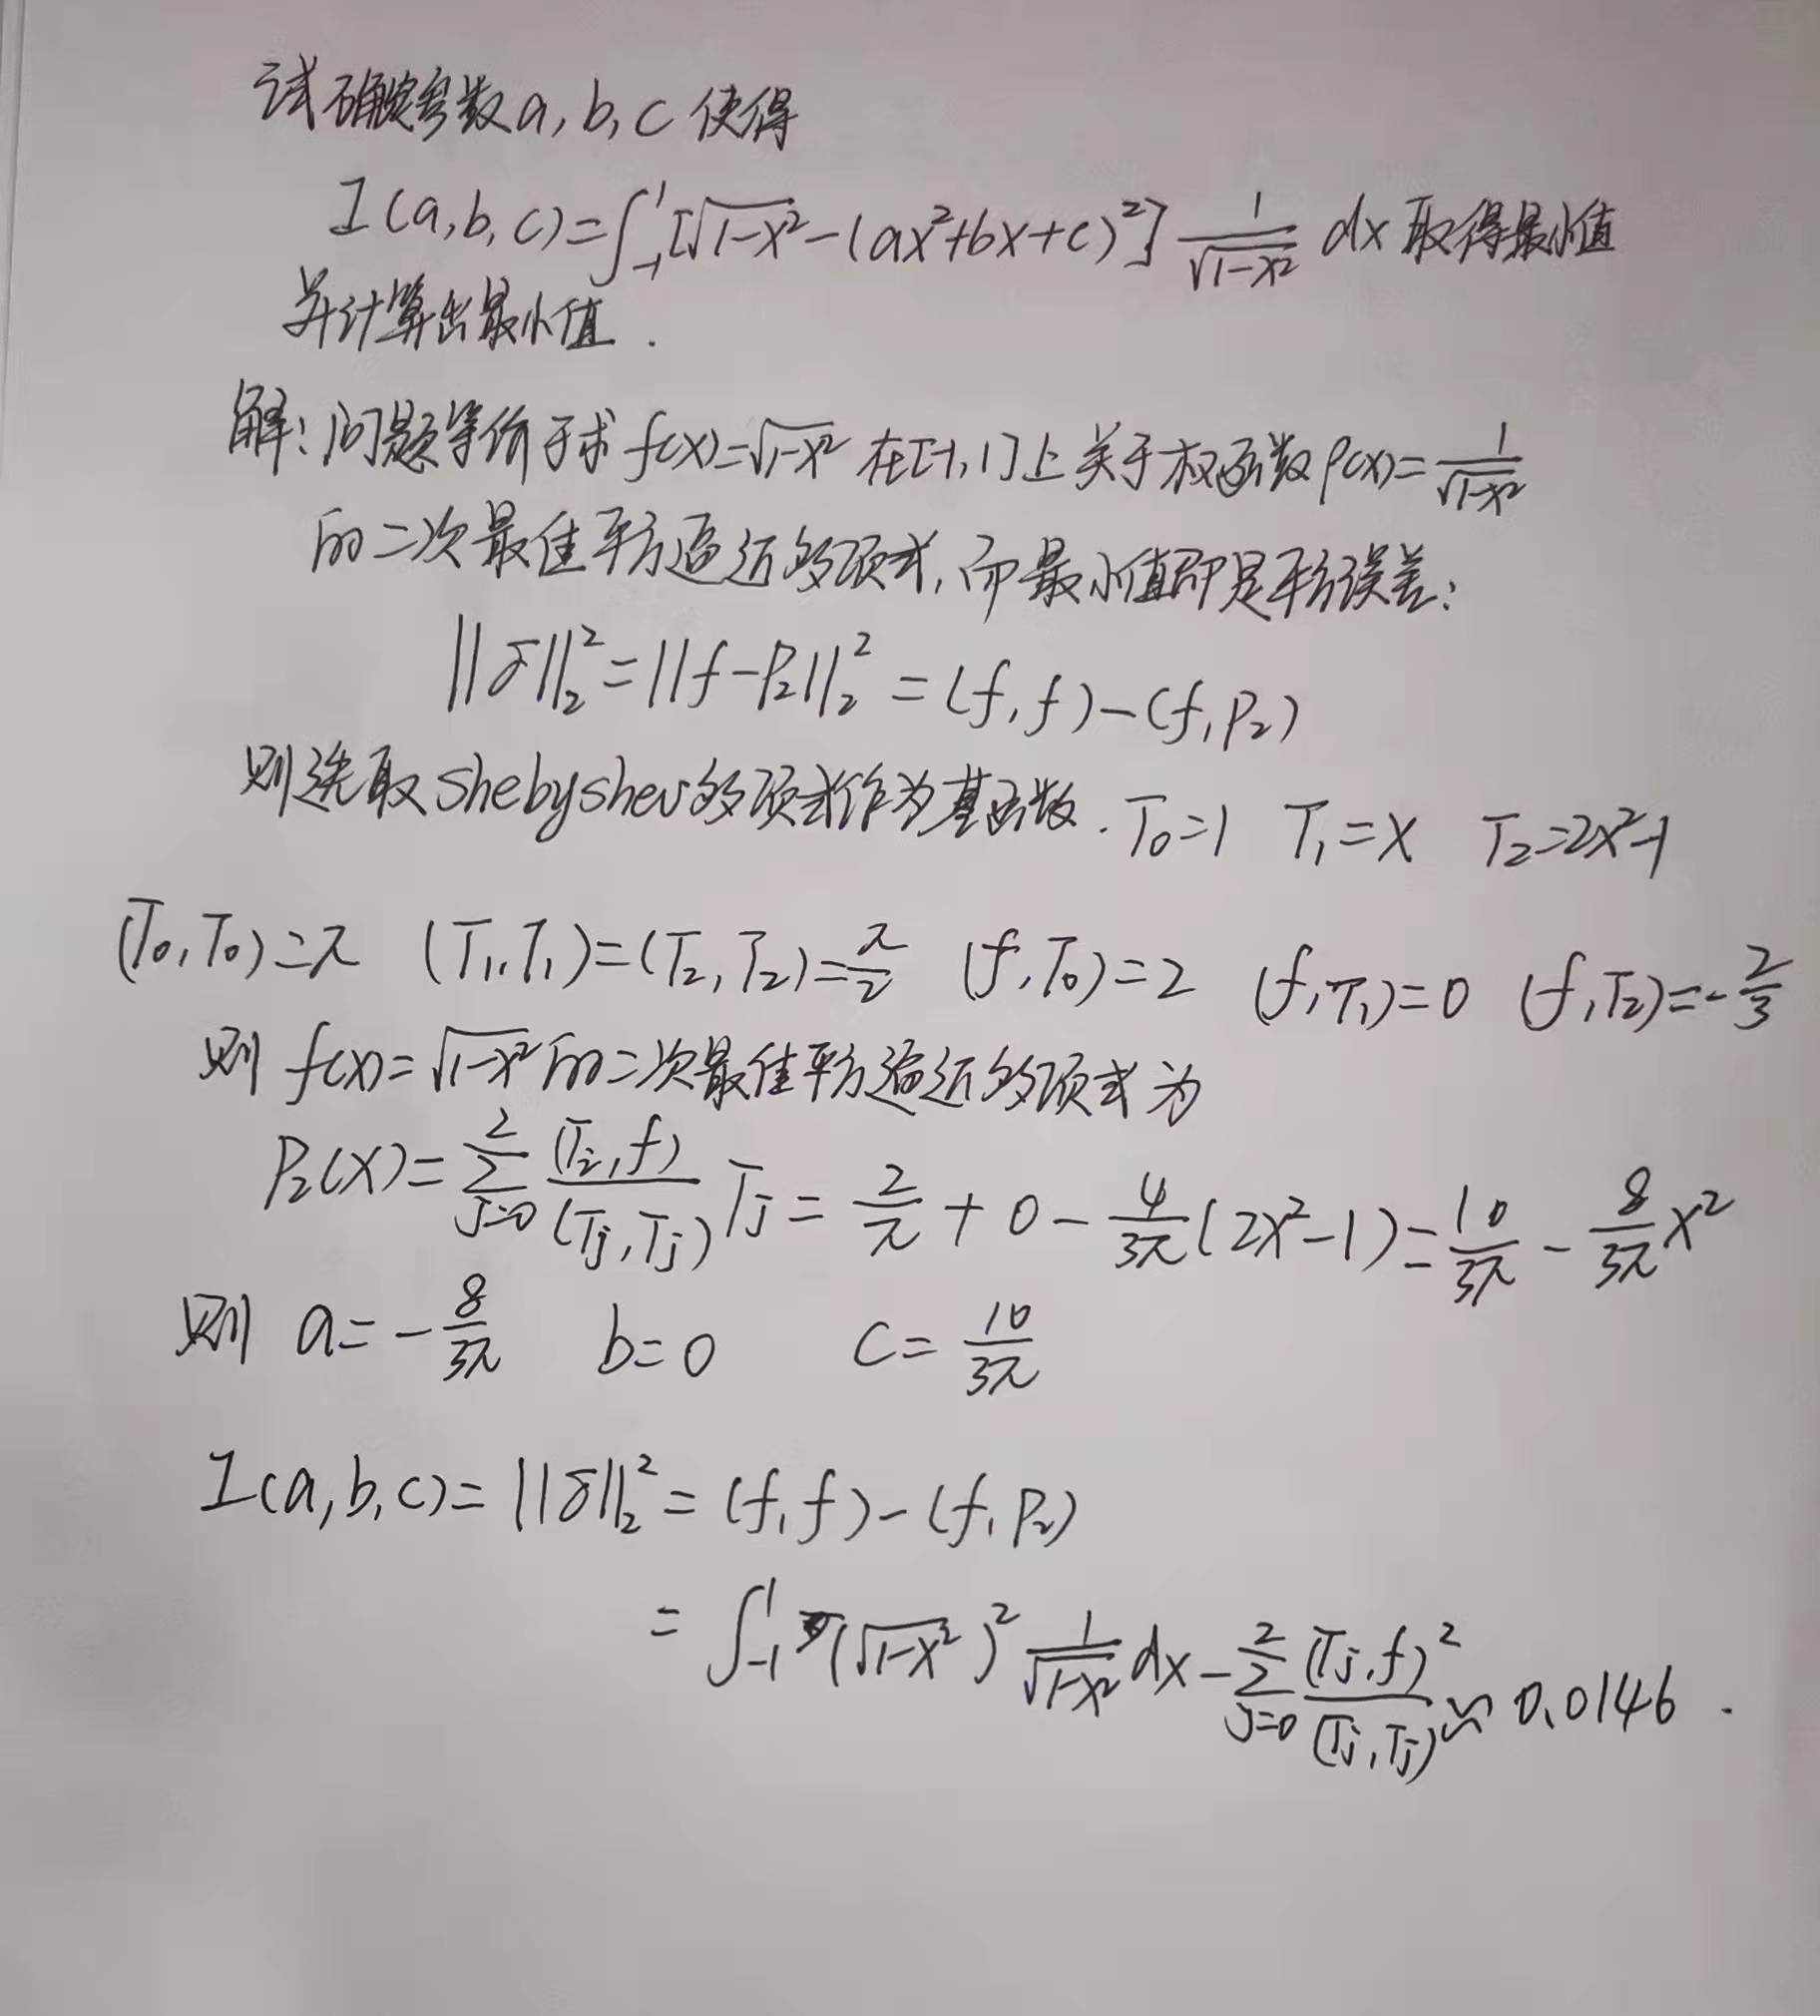 试确定参数a,b,c使得
I(a,b,c)=∫₋₁¹[√(1-x²)-(ax²+bx+c)²] 1/√(1-x²) dx取得最小值
并计算出最小值.
解:问题等价于求f(x)=√(1-x²)在[-1,1]上关于权函数ρ(x)=1/√(1-x²)
的二次最佳平方逼近多项式,而最小值即是平方误差:
||δ||₂²=||f-P₂||₂²=(f,f)-(f,P₂)
则选取shebyshev多项式作为基函数.T₀=1 T₁=x T₂=2x²-1
(T₀,T₀)=π (T₁,T₁)=(T₂,T₂)=π/2 (f,T₀)=2 (f,T₁)=0 (f,T₂)=-2/3
则f(x)=√(1-x²)的二次最佳平方逼近多项式为
P₂(x)=∑_{j=0}^{2} (Tⱼ,f)/(Tⱼ,Tⱼ) Tⱼ=2/π+0-4/3π(2x²-1)=10/3π-8/3π x²
则 a=-8/3π b=0 c=10/3π
I(a,b,c)=||δ||₂²=(f,f)-(f,P₂)
=∫₋₁¹(√(1-x²))² 1/√(1-x²) dx-∑_{j=0}^{2} (Tⱼ,f)²/(Tⱼ,Tⱼ)≈0.0146.